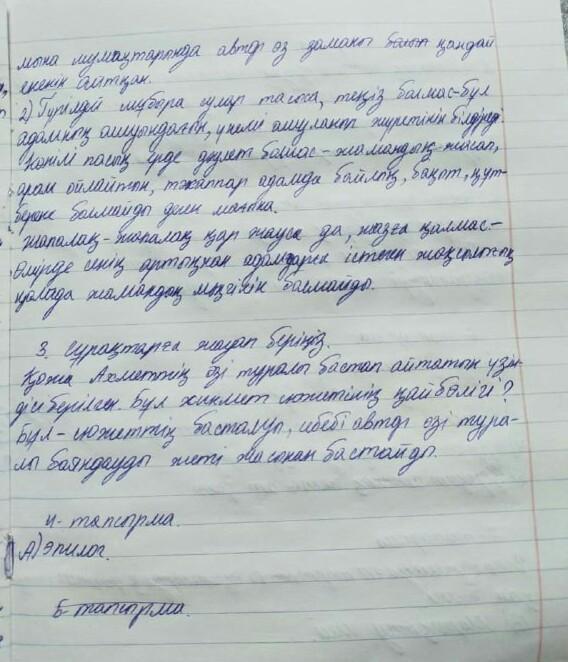 мына шумақтарында автор өз заманы болып қандай
екенін айтқан.
2) Гүрілдей шубыра сулар тасыса, теңіз болмас-бұл
адамның ашуындағын, үнемі ашуланып жүретінін білдіреді.
Көңілі пасық ерде дәулет болмас - жамандық жасап,
арам ойлайтын, тәкаппар адамда байлық, бақыт, құт-
береке болмайды деген мағына.
Жапалақ-жапалақ қар жауса да, жазға қалмас-
өмірде сенің артыңнан адамдарға істеген жақсылығың
қалада жамандық мәңгілік болмайды.
3. Сұрақтарға жауап беріңіз.
Қожа Ахметтің өзі туралы бастап айтатын үзін-
дісі берілген. Бұл хикмет сюжетінің қай бөлігі?
Бұл - сюжеттің басталуы, себебі автор өзі тура-
лы баяндауды жеті жасынан бастайды.
4- тапсырма.
А) Эпилог.
5- тапсырма.